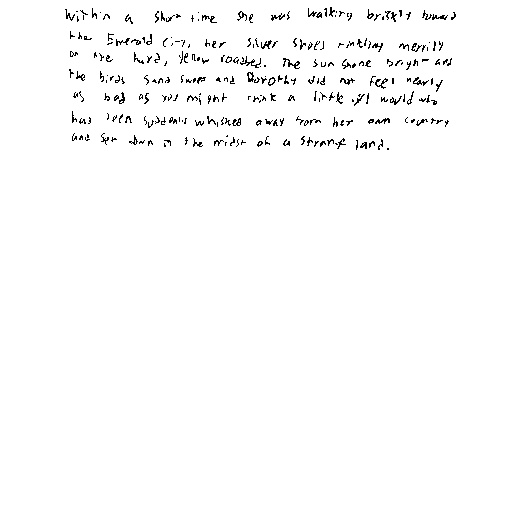 Within a short time she was walking briskly toward
the Emerald City, her silver shoes tinkling merrily
on the hard, yellow roadbed. The sun shone bright and
the birds sang sweet and Dorothy did not feel nearly
as bad as you might think a little girl would who
has been suddenly whisked away from her own country
and set down in the midst of a strange land.